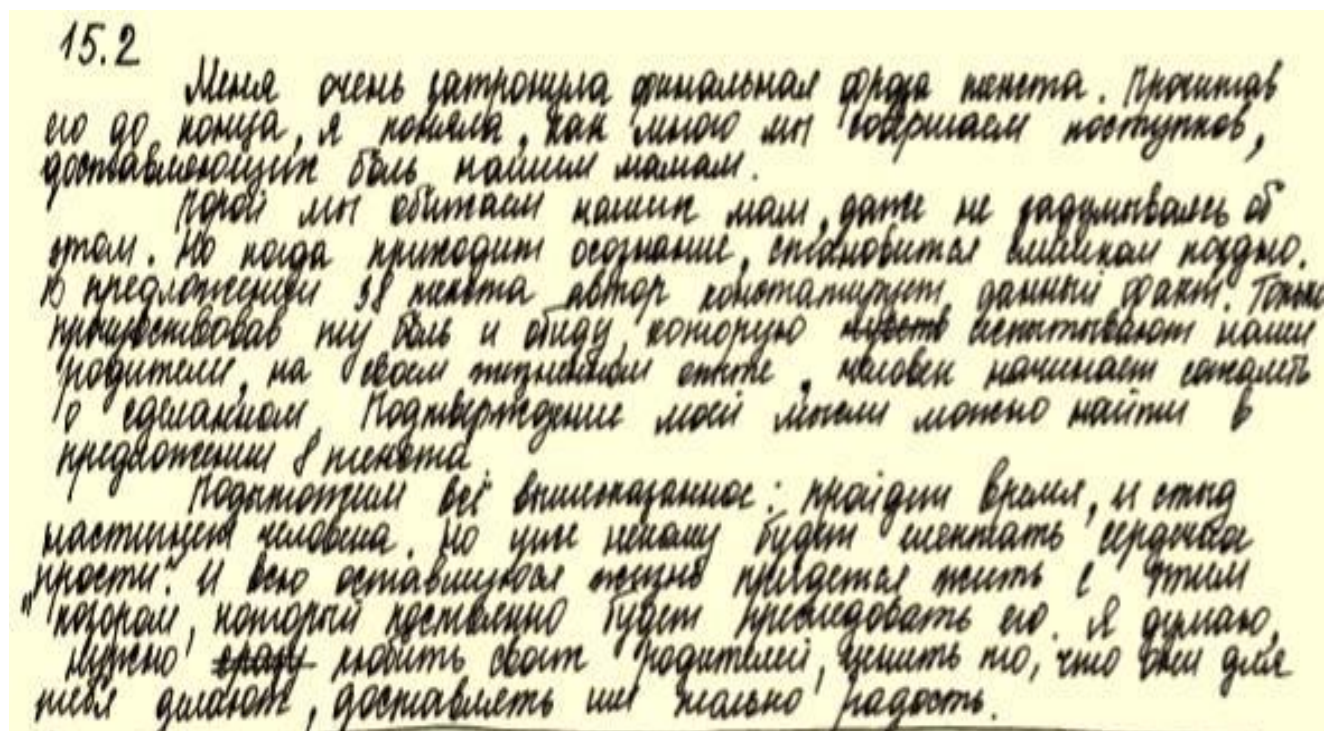 15.2
Меня очень затронула финальная фраза текста. Прочитав
его до конца, я поняла, как много мы совершаем поступков,
доставляющих боль нашим мамам.
Порой мы обижаем наших мам, даже не задумываясь об
этом. Но когда приходит осознание, становится слишком поздно.
В предложении 38 текста автор констатирует данный факт. Только
прочувствовав ту боль и обиду, которую чувств испытывают наши
родители, на своём жизненном опыте, человек начинает сожалеть
о сделанном. Подтверждение моей мысли можно найти в
предложении 8 текста
Подытожим всё вышесказанное: пройдет время, и стыд
настигнет человека. Но уже некому будет шептать сердечное
"прости". И всю оставшуюся жизнь придется жить с этим
позором, который постоянно будет преследовать его. Я думаю,
нужно сразу любить своих родителей, ценить то, что они для
тебя делают, доставлять им только радость.